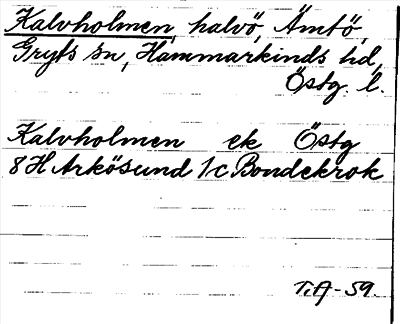 Kalvholmen, halvö, Ämtö,
Gryts sn, Hammarkinds hd,
Östg. l.
Kalvholmen ek Östg
8 H Arkösund 1/c Bondekrok
T.A-59.